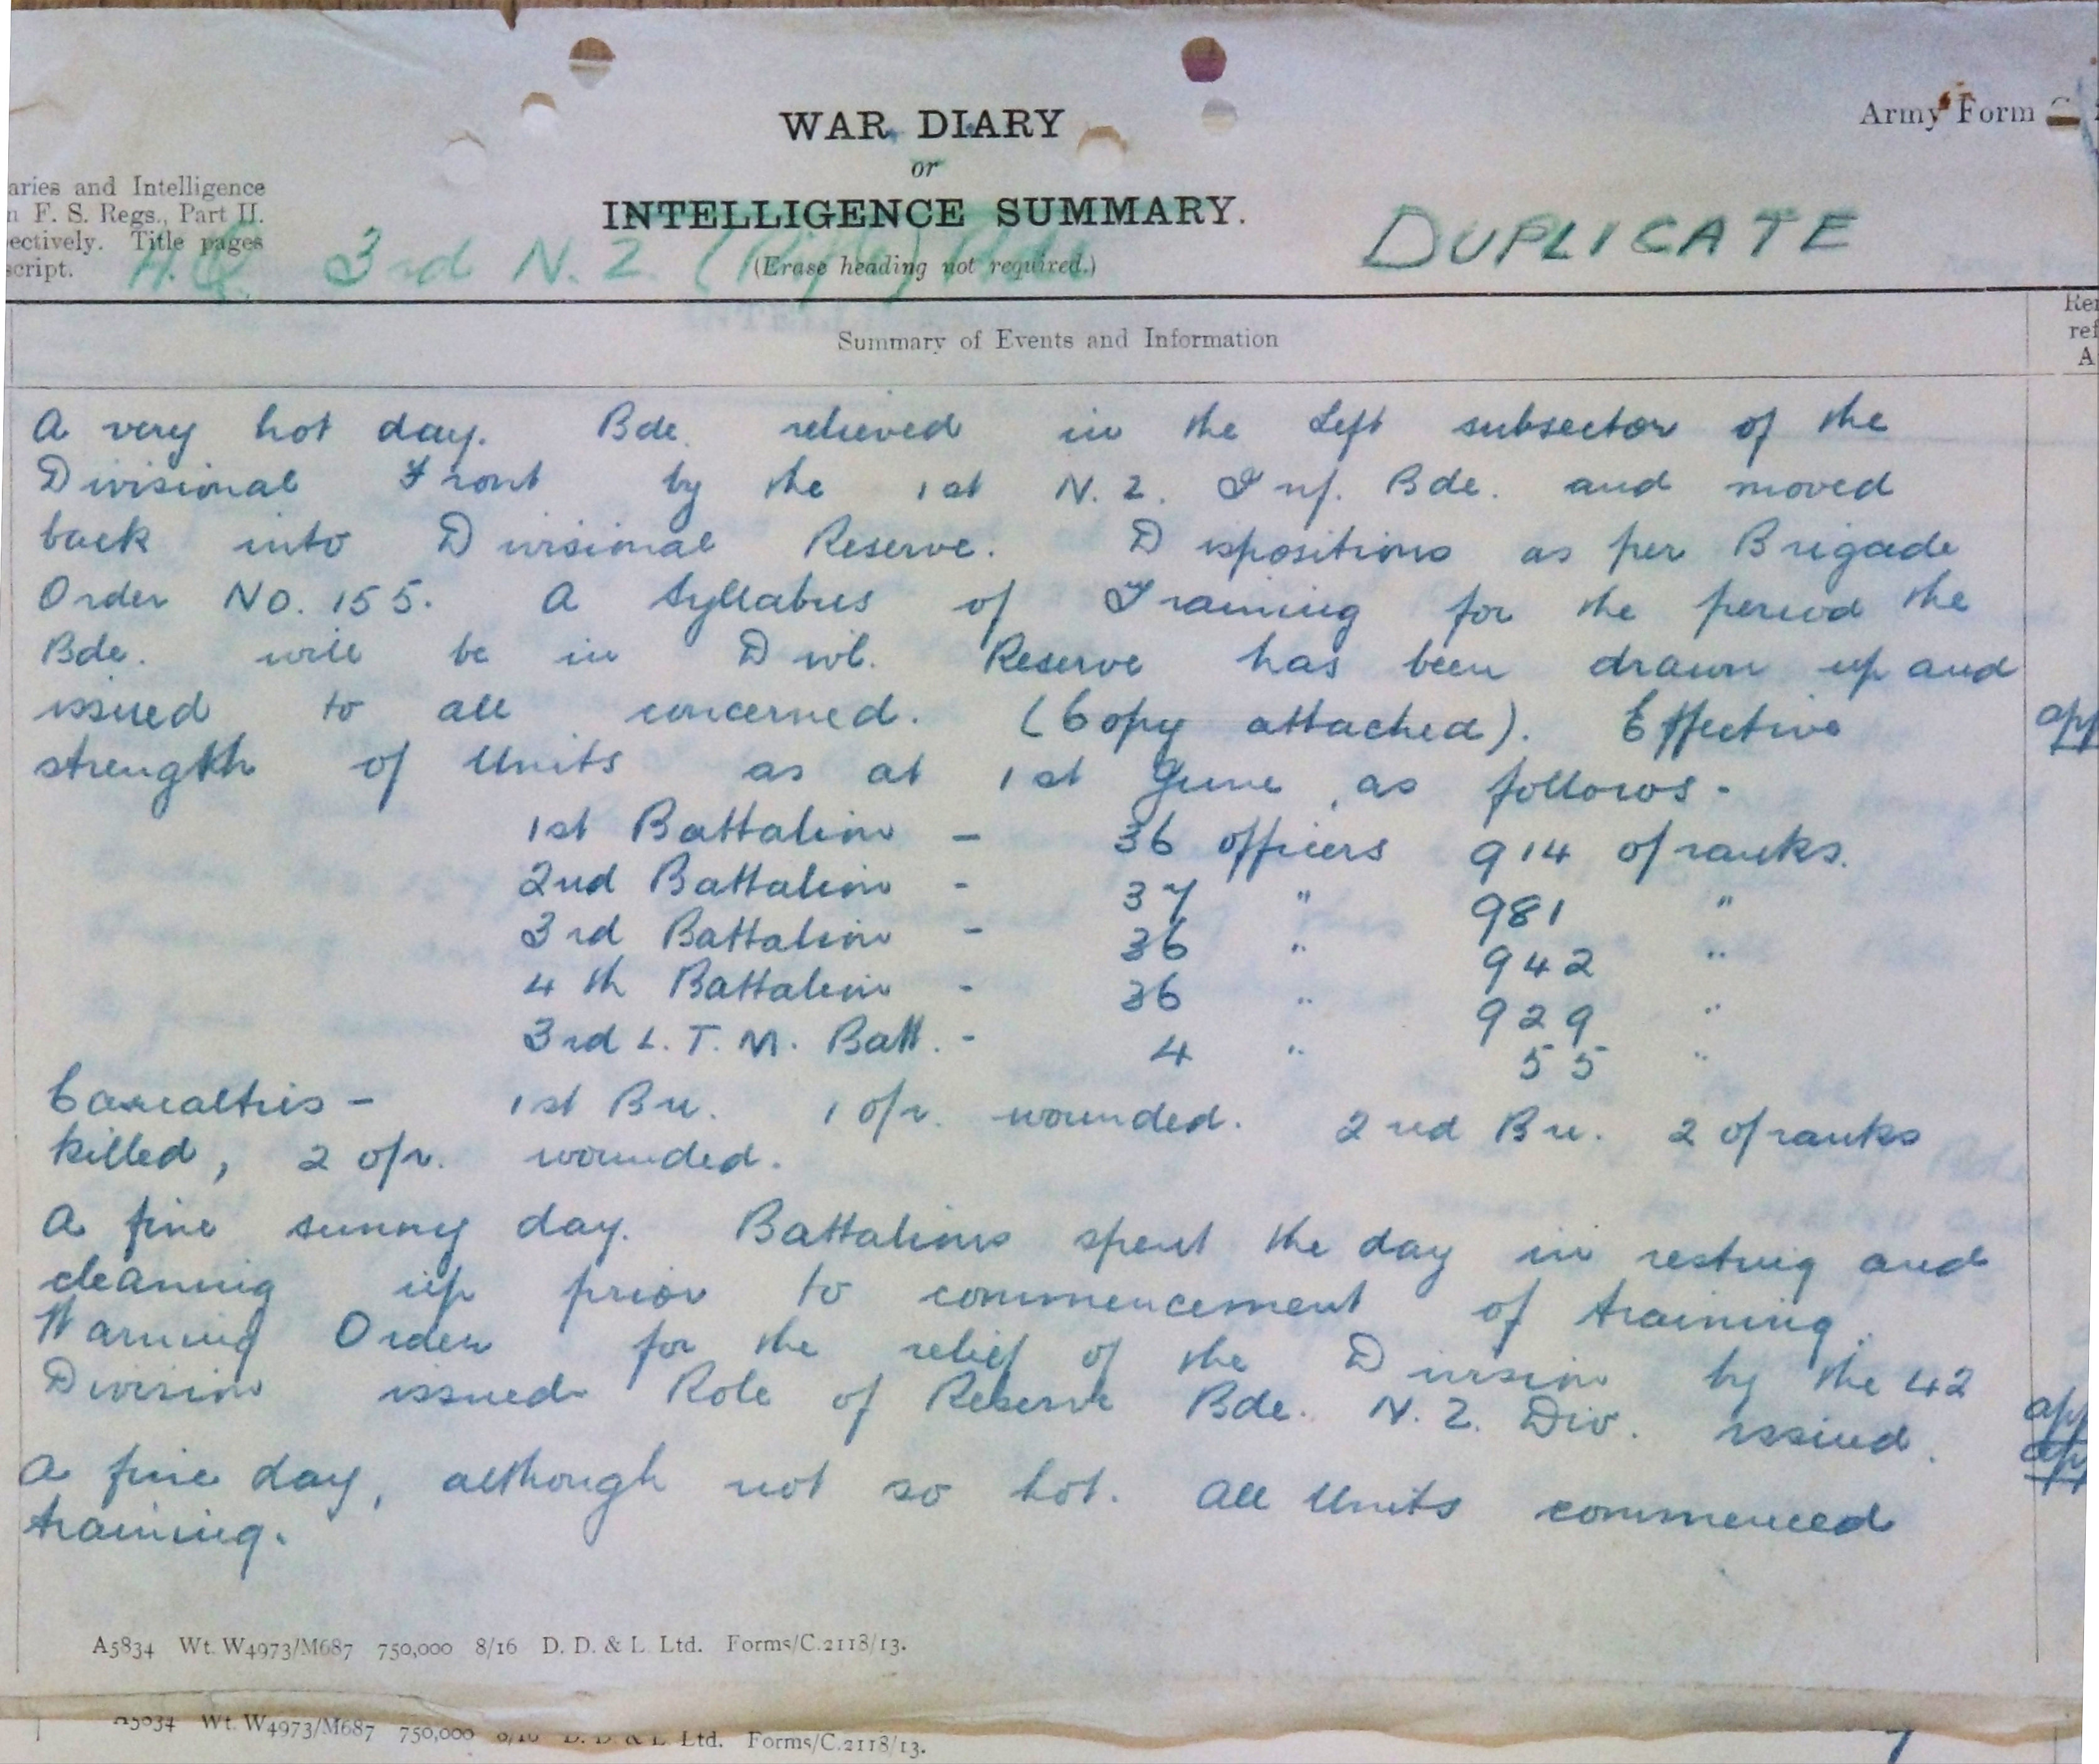 WAR DIARY
or
INTELLIGENCE SUMMARY.
(Erase heading not required.)
Army Form
aries and Intelligence
n F. S. Regs., Part II.
ectively. Title pages
script.
H.Q. 3rd N.Z. (Rifle) Bde
DUPLICATE
Summary of Events and Information
A very hot day. Bde. relieved in the Left subsector of the
Divisional Front by the 1st N.Z. Inf. Bde. and moved
back into Divisional Reserve. Dispositions as per Brigade
Order No. 155. A Syllabus of Training for the period the
Bde. will be in Divl. Reserve has been drawn up and
issued to all concerned. (Copy attached). Effective
strength of Units as at 1st June, as follows -
1st Battalion - 36 officers 914 o/ranks.
2nd Battalion - 37 " 981 "
3rd Battalion - 36 " 942 "
4th Battalion - 36 " 929 "
3rd L.T.M. Batt. - 4 " 55 "
Casualties - 1st Bn. 1 o/r. wounded. 2nd Bn. 2 o/ranks
killed, 2 o/r. wounded.
A fine sunny day. Battalions spent the day in resting and
cleaning up prior to commencement of training.
Warning Order for the relief of the Division by the 42
Division issued Role of Reserve Bde. N.Z. Div. issued.
A fine day, although not so hot. All Units commenced
training.
A5834 Wt. W4973/M687 750,000 8/16 D. D. & L. Ltd. Forms/C.2118/13.
A5834 Wt. W4973/M687 750,000 8/16 D. D. & L. Ltd. Forms/C.2118/13.